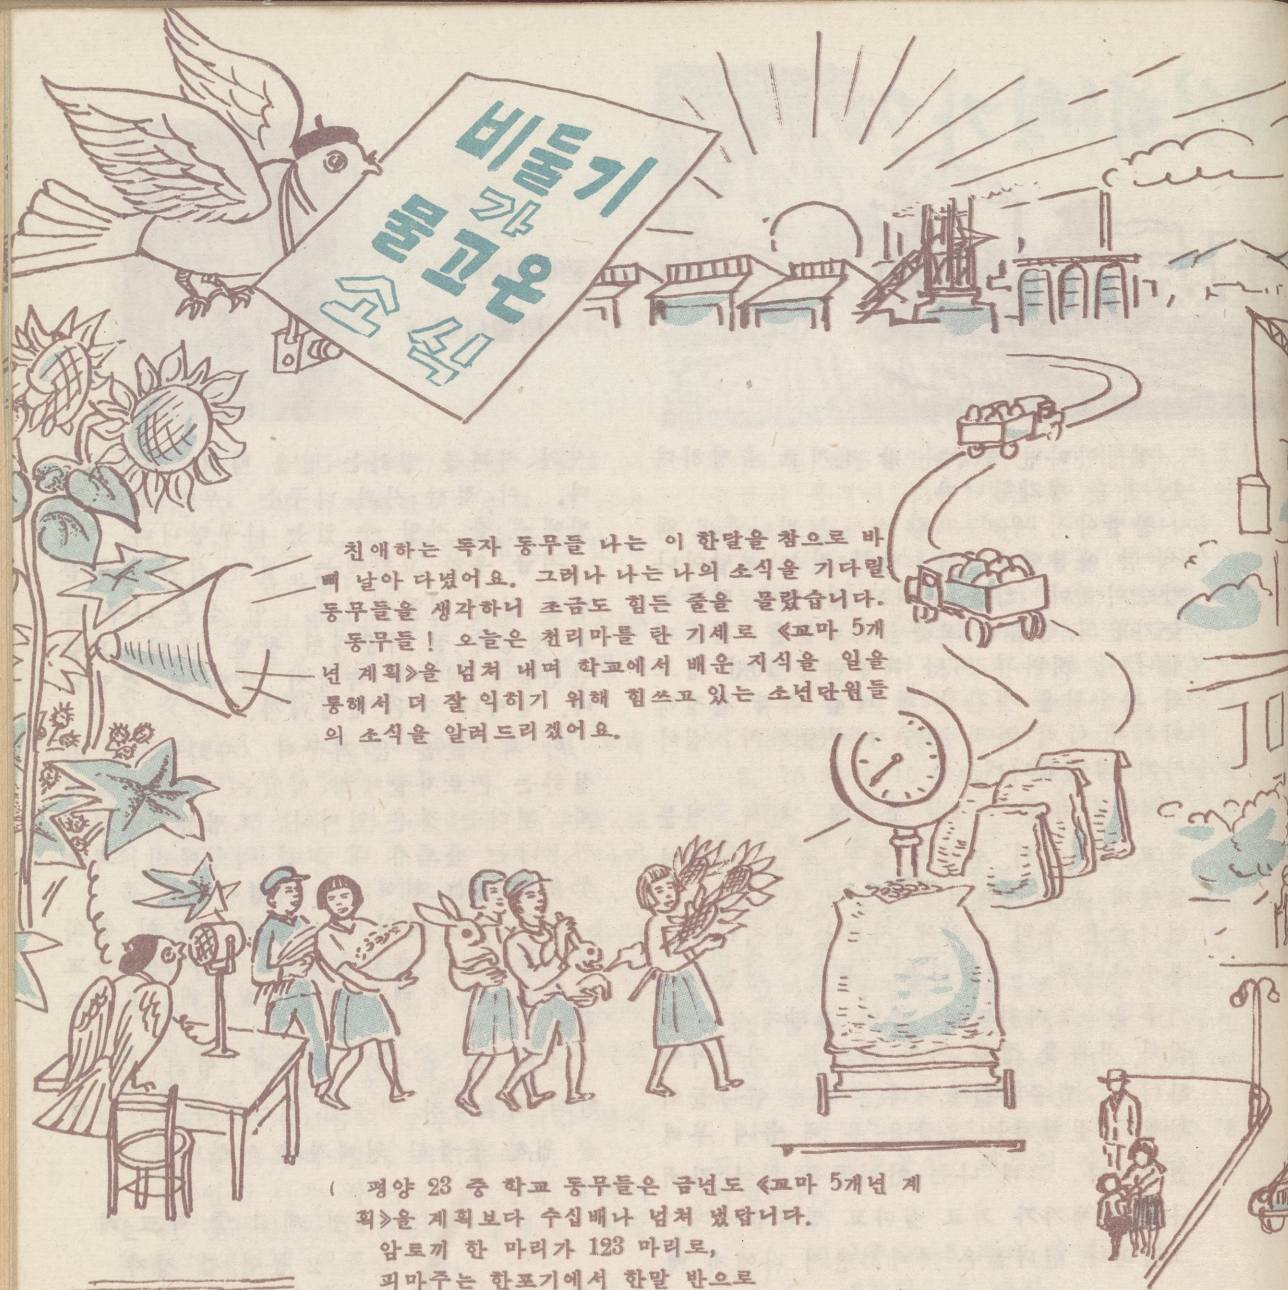 비둘기
가
물고온
소식
친애하는 독자 동무들 나는 이 한달을 참으로 바
삐 날아 다녔어요. 그러나 나는 나의 소식을 기다릴
동무들을 생각하니 조금도 힘든 줄을 몰랐습니다.
동무들! 오늘은 천리마를 탄 기세로 《꼬마 5개
년 계획》을 넘쳐 내며 학교에서 배운 지식을 일을
통해서 더 잘 익히기 위해 힘쓰고 있는 소년단원들
의 소식을 알려드리겠어요.
평양 23 중 학교 동무들은 금년도 《꼬마 5개년 계
획》을 계획보다 수십배나 넘쳐 냈답니다.
암토끼 한 마리가 123 마리로,
피마주는 한포기에서 한말 반으로